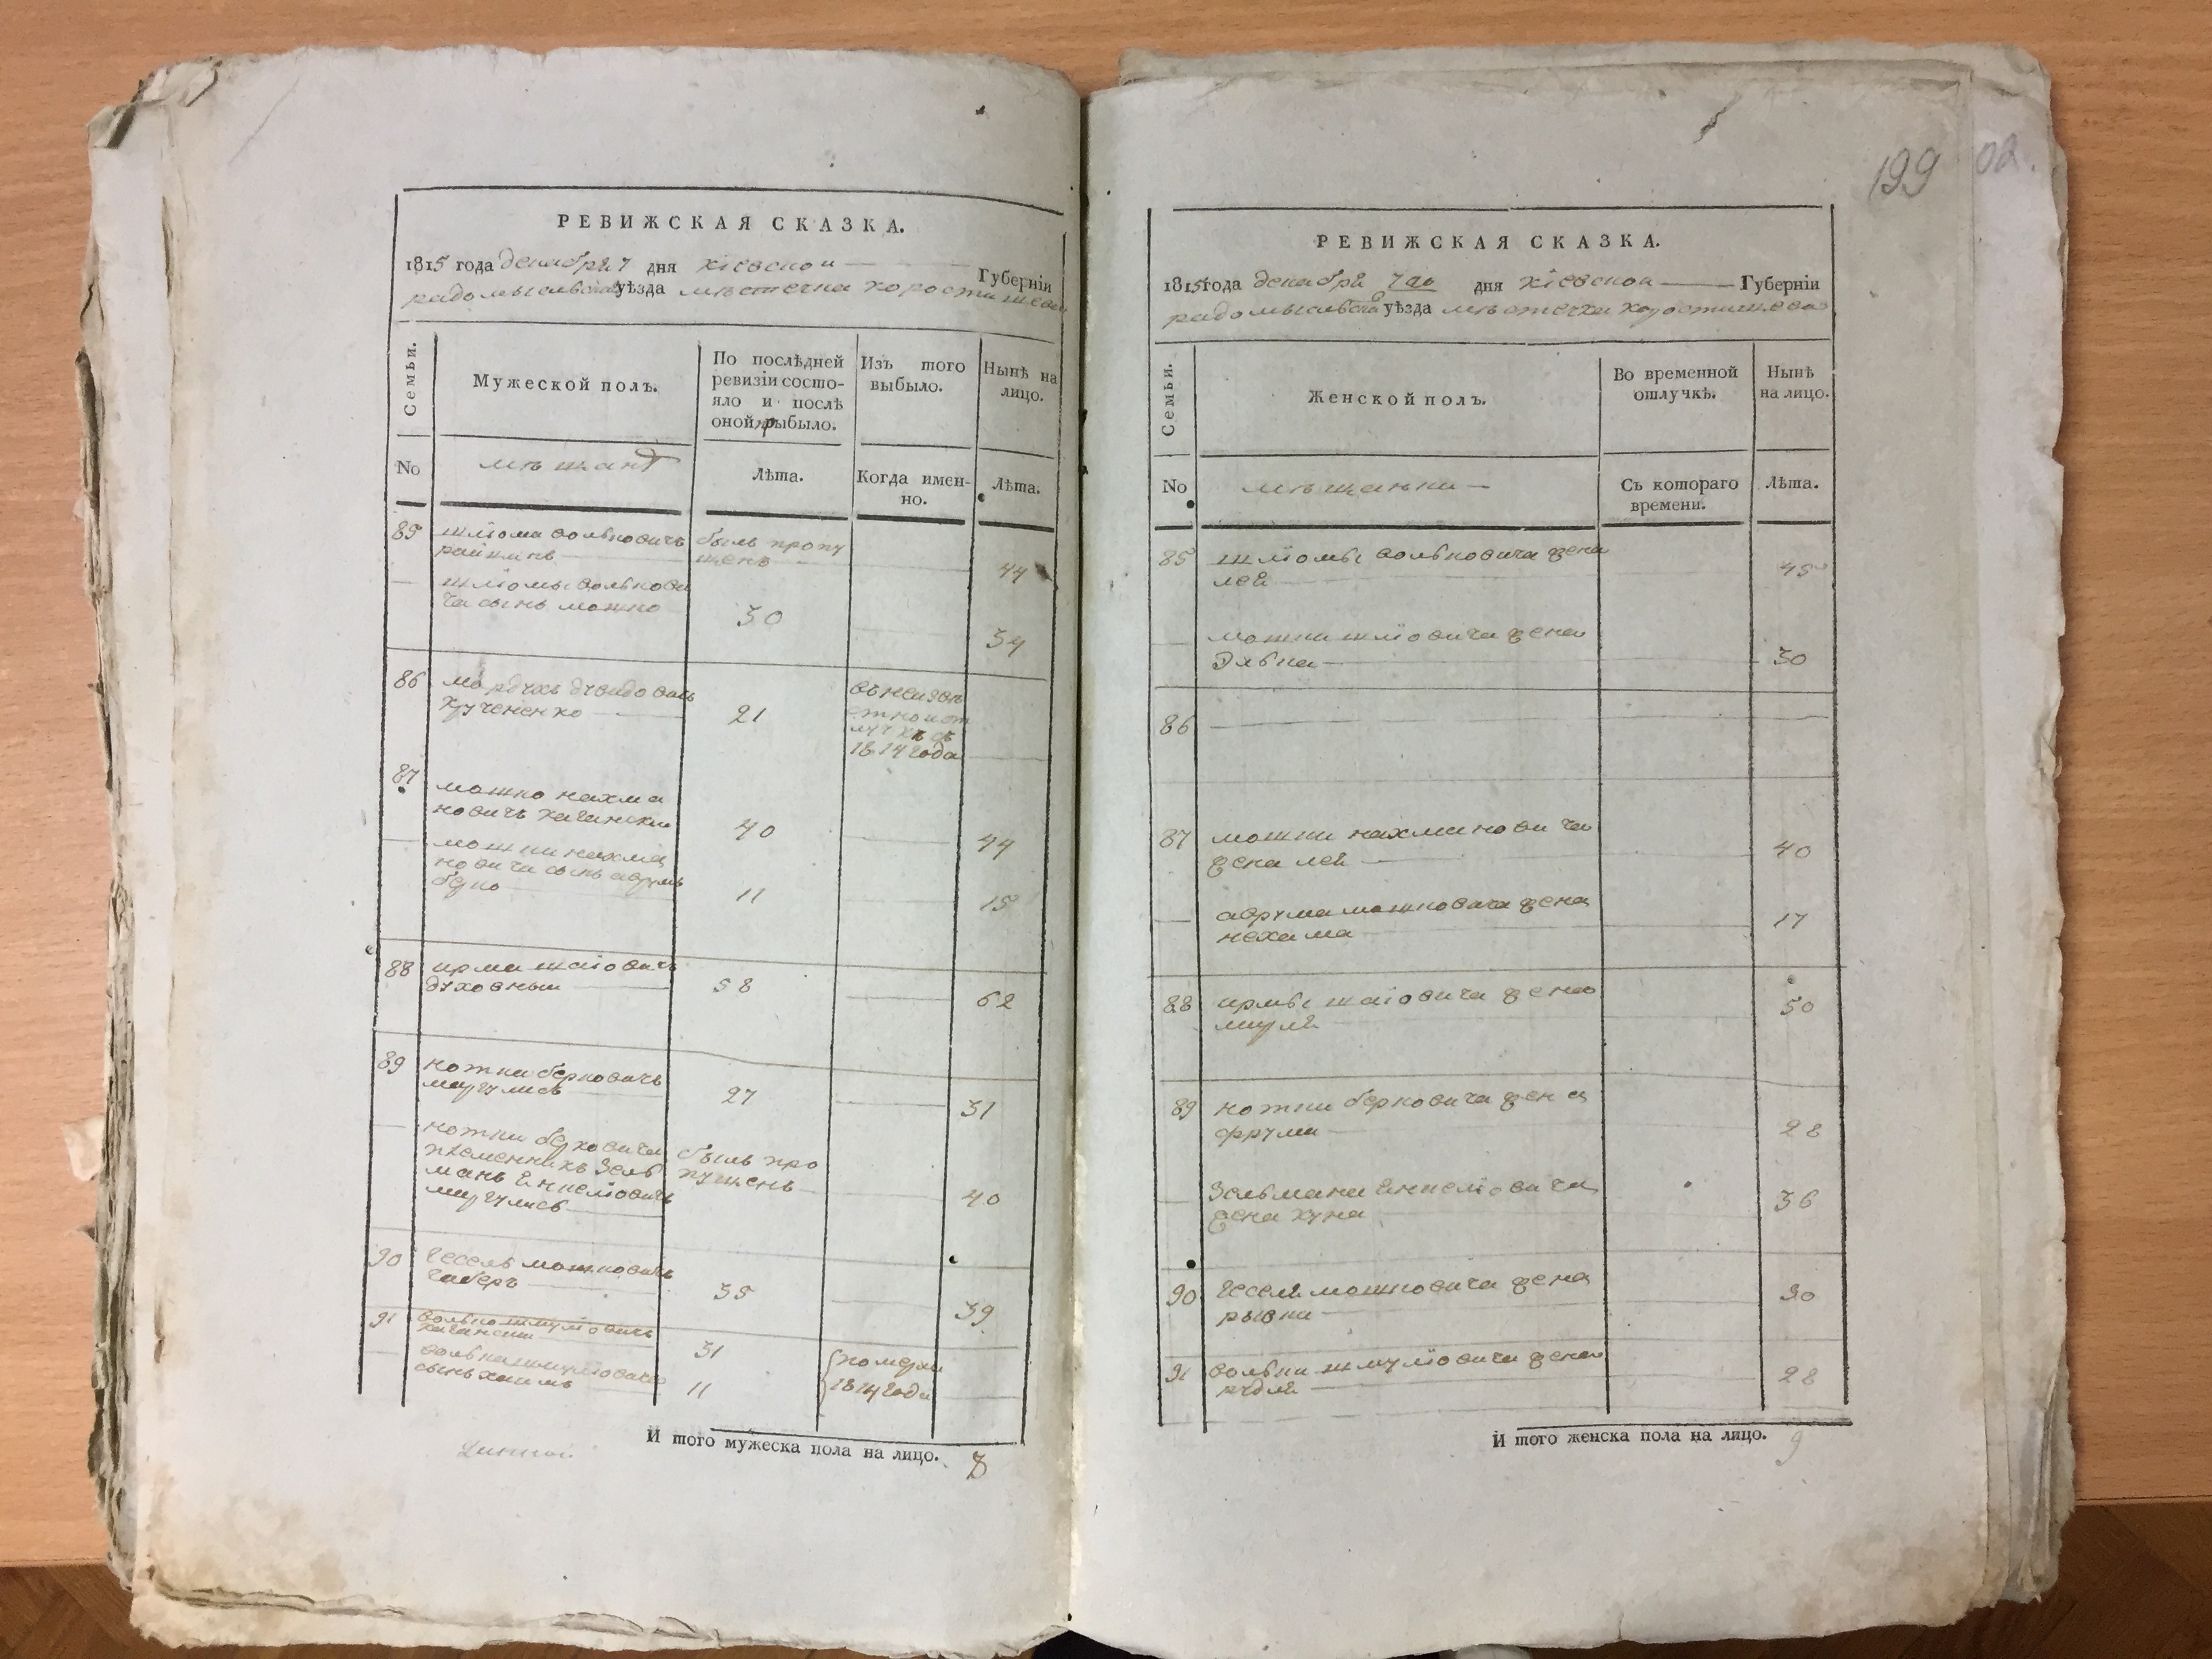 РЕВИЖСКАЯ СКАЗКА.
1815 года декабря 7 дня кіевской Губерніи
радомысльскаго уѣзда мѣстечка коростишева
Семьи.
Мужеской полъ.
По послѣдней
ревизіи состо-
яло и послѣ
оной прыбыло.
Изъ того
выбыло.
Нынѣ на
лицо.
No
мѣщанъ
Лѣта.
Когда имен-
но.
Лѣта.
85 шліома волковичъ был пропу
райкинъ щенъ 44
шліомы волкови
ча сынъ мошко 30 34
86 мордухъ дувидовичъ
кучененко 21
въ неизвѣ
стной от
лучкѣ съ
1814 года
87 мошко нахма
новичъ каганский 40 44
мошки нахма
новича сынъ аврумъ
берко 11 15
88 ирма шаіовичъ
духовный 58 62
89 ножки берковичъ
маргулисъ 27 31
ножки берковича
племенникъ зель
манъ
маргулисъ
былъ про
пущенъ 40
90 гесель мошковичъ
35 39
91 волько шмуліовичъ
каганский 31
вольки шмуліовича
сынъ хаимъ 11
померли
1814 года
И того мужеска пола на лицо. 8
199
РЕВИЖСКАЯ СКАЗКА.
1815 года декабря 7го дня кіевской Губерніи
радомысльскаго уѣзда мѣстечка коростишева
Семьи.
Женской полъ.
Во временной
отлучкѣ.
Нынѣ
на лицо.
No
мѣщанки
Съ котораго
времени.
Лѣта.
85 шліомы волковича жена
лея 45
мошки шліовича жена
элька 30
86
87 мошки нахмановича
жена лея 40
аврума мошковича жена
нехама 17
88 ирмы шаіовича жена
50
89 ножки берковича жена
фрума 28
зельмана
жена хуна 36
90 геселя мошковича жена
рывка 30
91 вольки шмуліовича жена
рудля 28
И того женска пола на лицо. 9